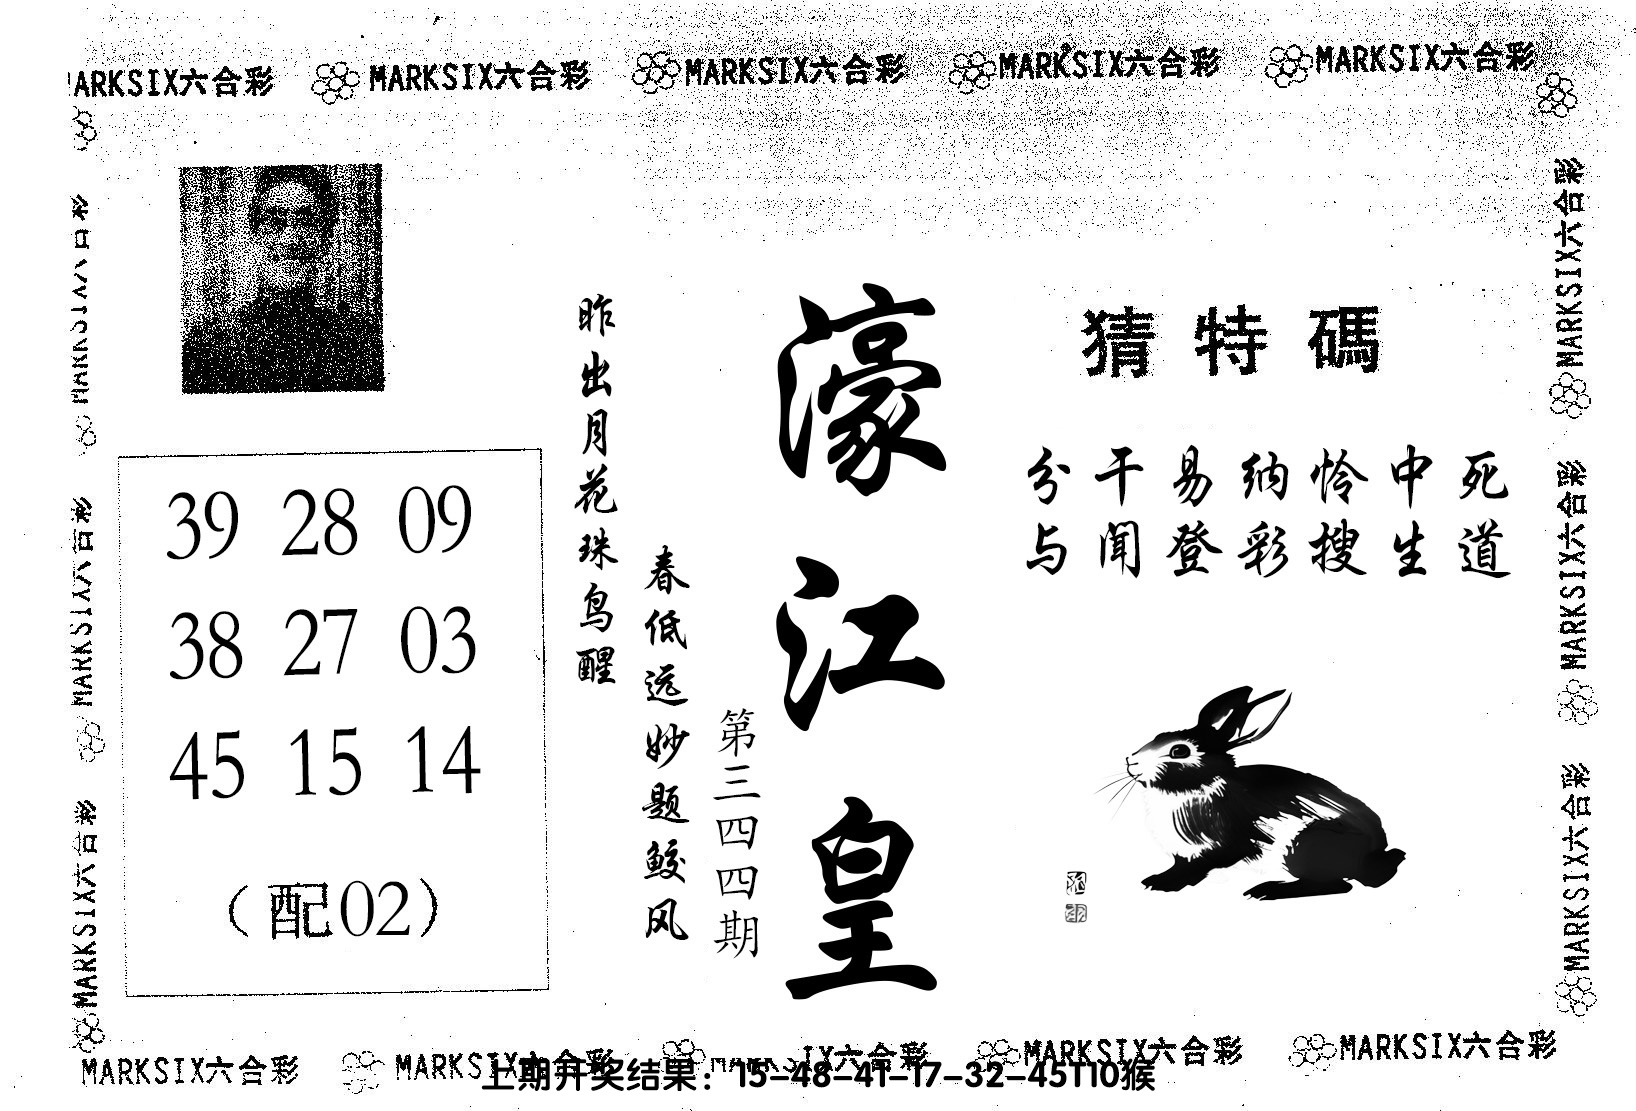 MARKSIX六合彩 MARKSIX六合彩 MARKSIX六合彩 MARKSIX六合彩
MARKSIX六合彩
猜特碼
分干易纳怜中死
与闻登彩搜生道
濠江皇
第三四四期
昨出月花珠鸟醒
春低远妙题鲛风
39 28 09
38 27 03
45 15 14
（配02）
MARKSIX六合彩
MARKSIX六合彩
MARKSIX六合彩
MARKSIX六合彩
MARKSIX六合彩
MARKSIX六合彩 MARKSIX六合彩 MARKSIX六合彩 MARKSIX六合彩
上期开奖结果：15-48-41-17-32-45T10猴